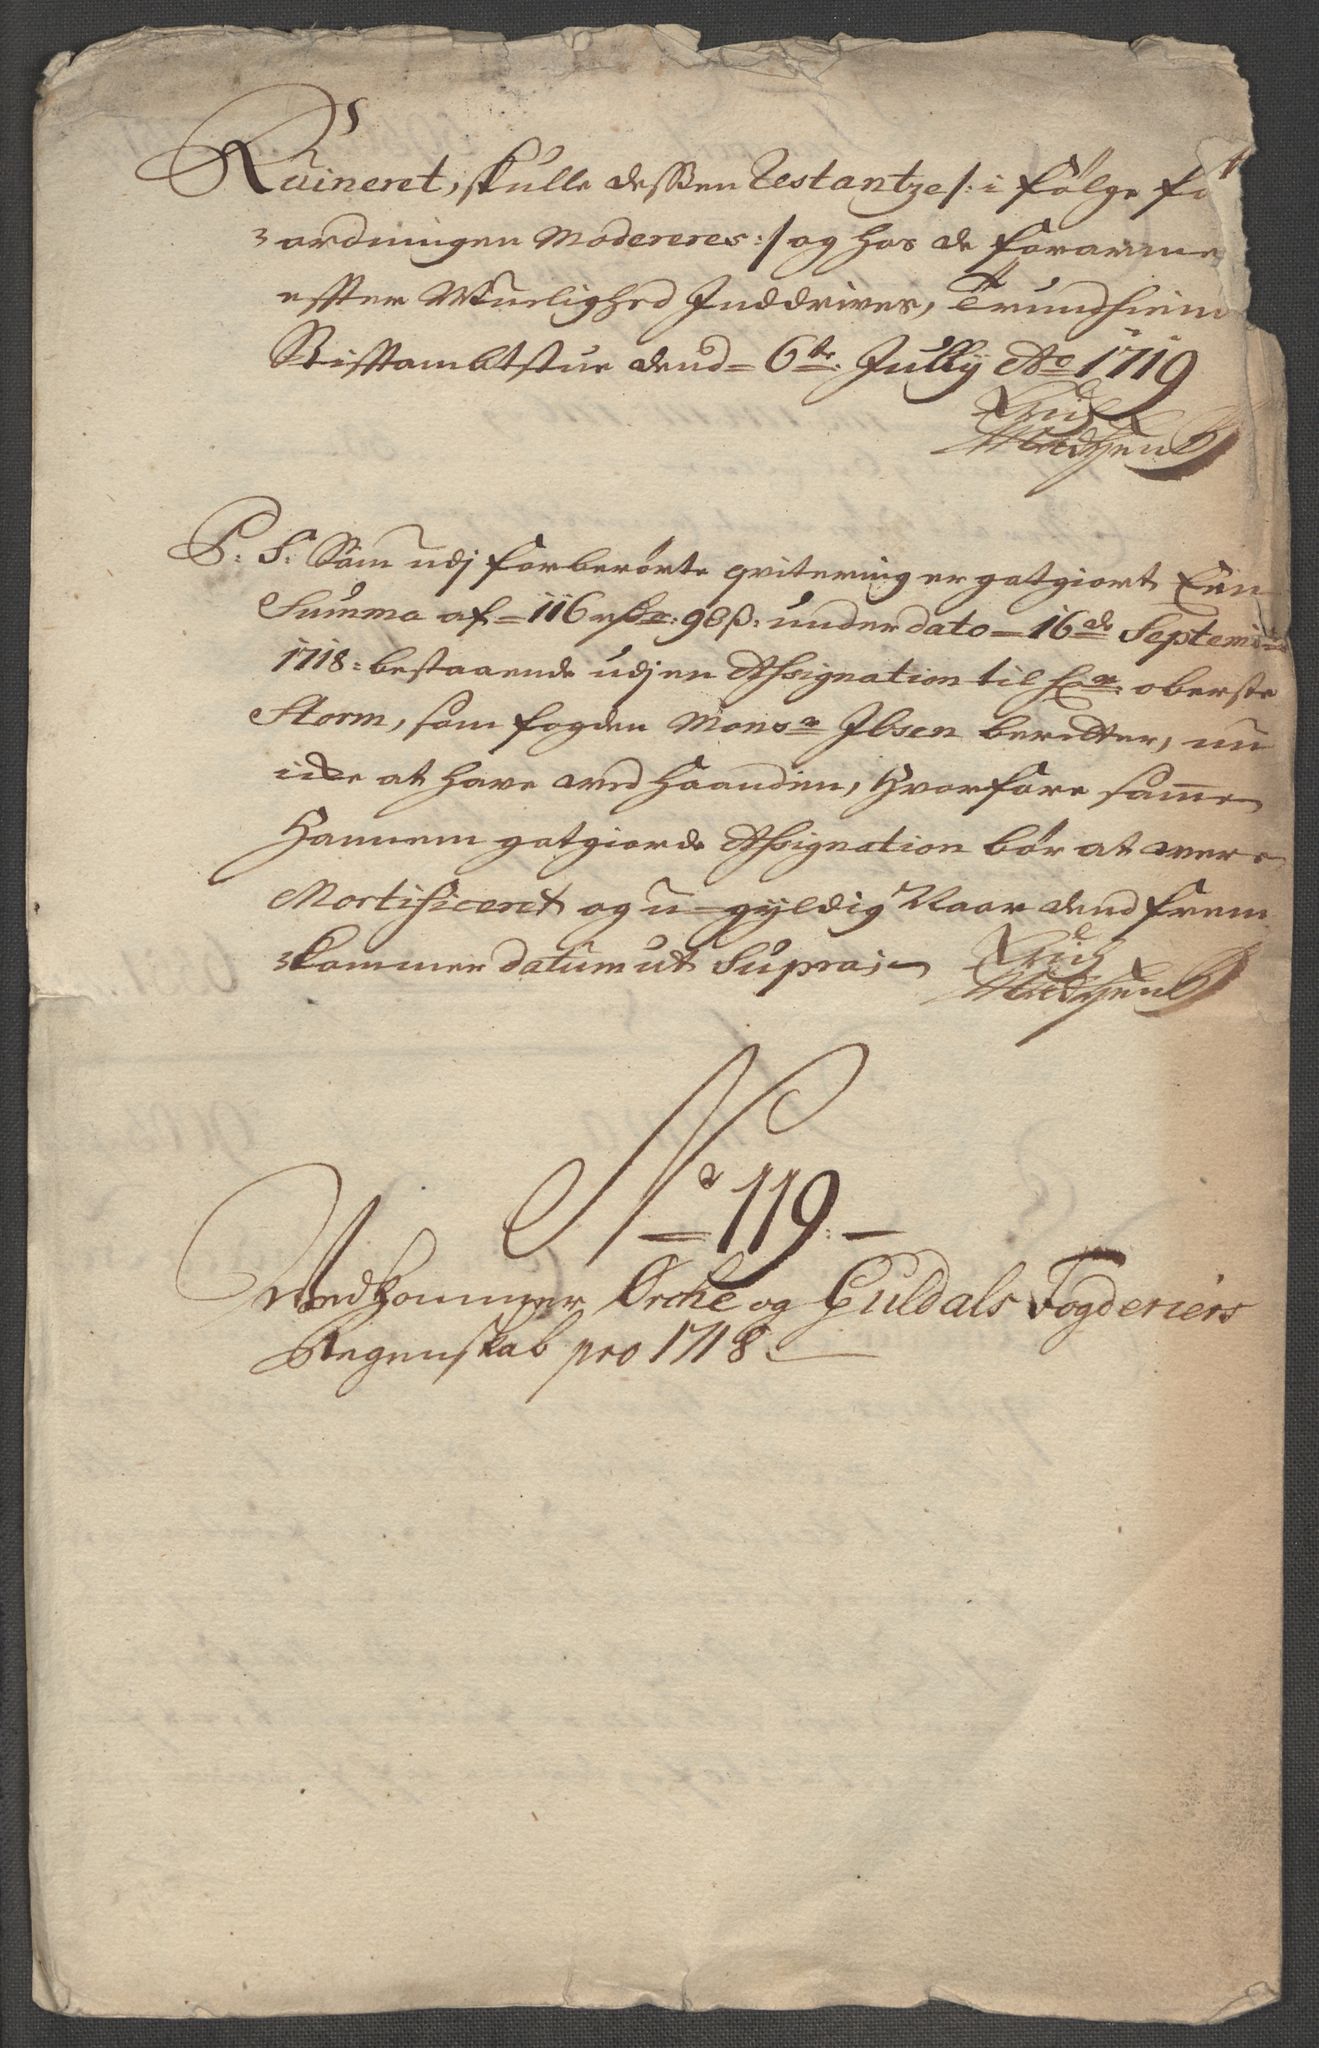 Ruineret, skulle dessen Restantze /: i følge for
ordningen Modereres :/ og hos de forarme
effter Muelighed Inddrives, Trundhiem
Stifftambtstue dend 6te Julÿ Ao 1719
P: S: Som udj forberørte qvitering er gatgiort Een
Summa af = 116 rdr: 90 ß: under dato = 16de Septemb
1718: bestaaende udj en Assignation til hr: oberste
Storm, som fogden Monsr Ibsen beretter, nu
icke at have ved haanden, hvorfore samme
hannem gatgiorde Assignation bør at være
Mortificeret og u=gyldig Naar dend frem
kommer datum ut Supra;
No 119.
Vedkommer Orche og Guldals Fogderiers
Regenskab pro 1718